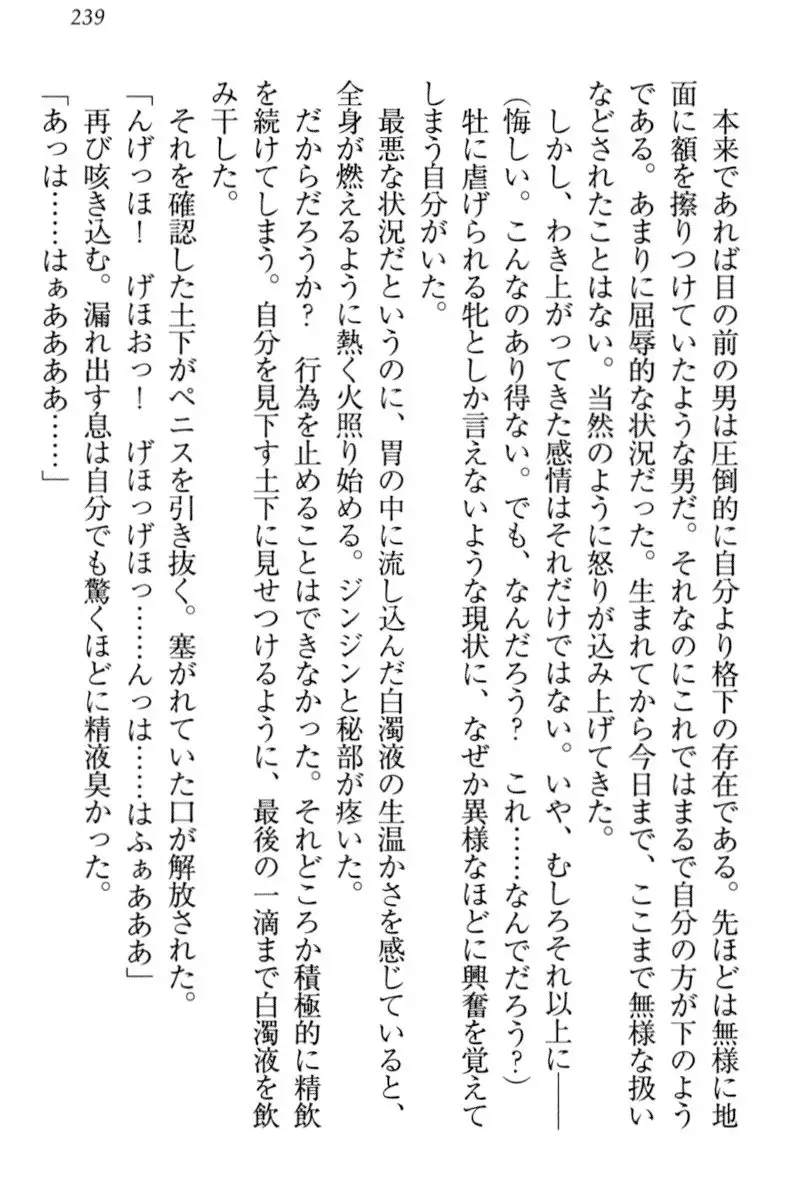 239
本来であれば目の前の男は圧倒的に自分より格下の存在である。先ほどは無様に地
面に額を擦りつけていたような男だ。それなのにこれではまるで自分の方が下のよう
である。あまりに屈辱的な状況だった。生まれてから今日まで、ここまで無様な扱い
などされたことはない。当然のように怒りが込み上げてきた。
しかし、わき上がってきた感情はそれだけではない。いや、むしろそれ以上に――
(悔しい。こんなのあり得ない。でも、なんだろう？　これ……なんでだろう？)
牡に虐げられる牝としか言えないような現状に、なぜか異様なほどに興奮を覚えて
しまう自分がいた。
最悪な状況だというのに、胃の中に流し込んだ白濁液の生温かさを感じていると、
全身が燃えるように熱く火照り始める。ジンジンと秘部が疼いた。
だからだろうか？　行為を止めることはできなかった。それどころか積極的に精飲
を続けてしまう。自分を見下す土下に見せつけるように、最後の一滴まで白濁液を飲
み干した。
それを確認した土下がペニスを引き抜く。塞がれていた口が解放された。
「んげっほ！　げほおっ！　げほっげほっ……んっは……はふぁあああ」
再び咳き込む。漏れ出す息は自分でも驚くほどに精液臭かった。
「あっは……はぁああああ……」